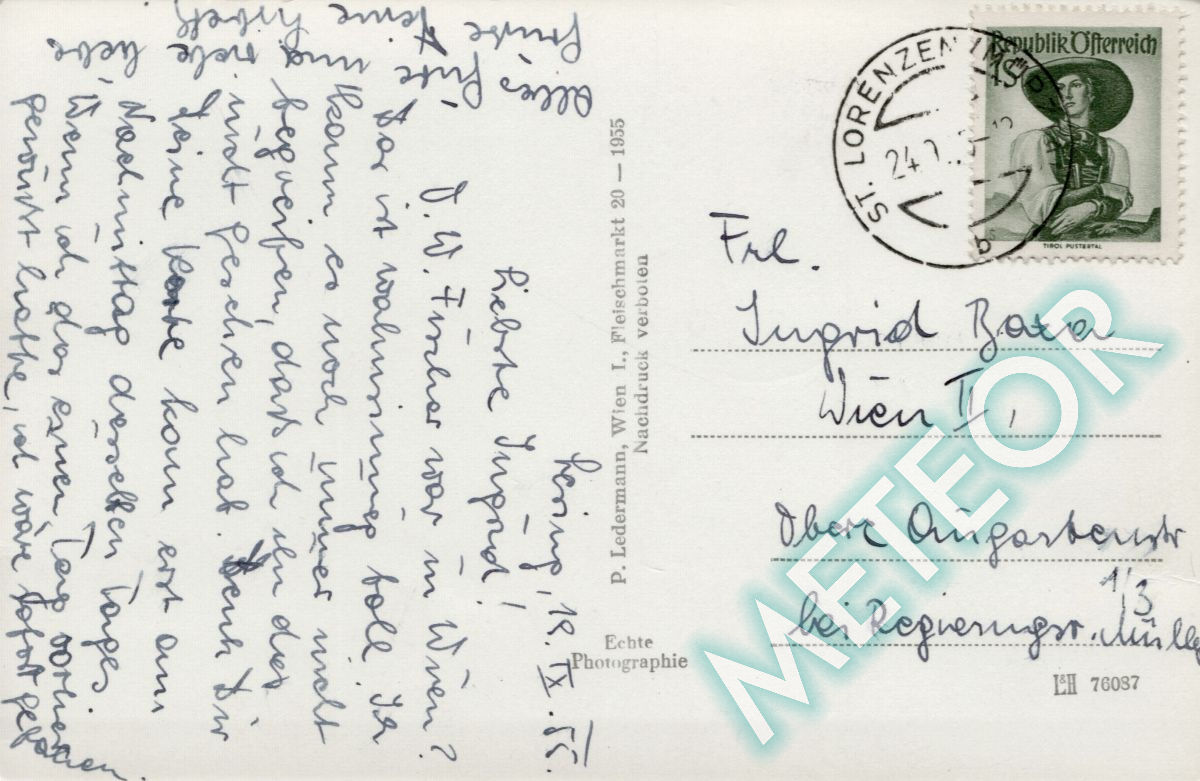 Lesing, 12. IX. 55.
Liebste Ingrid!
D. W. Fischer war in Wien?
Das ist wahnsinnig toll. Ich
kann es noch immer nicht
begreifen, dass ich ihn das
nicht gesehen hab. Denk Dir
Deine Karte kam erst am
Nachmittag desselben Tages
Wenn ich das einen Tag vorher
gewußt hätte, ich wäre sofort gefahren.
Alles Gute und viele liebe
Grüße Deine
P. Ledermann, Wien I., Fleischmarkt 20 — 1955
Nachdruck verboten
Echte
Photographie
ST. LORENZEN IM
24.
Republik Österreich
1S
TIROL PUSTERTAL
Frl.
Ingrid Baxa
Wien II,
Obere Augartenstr
1/3
bei Regierungsr. Müller
L&H 76087
METEOR